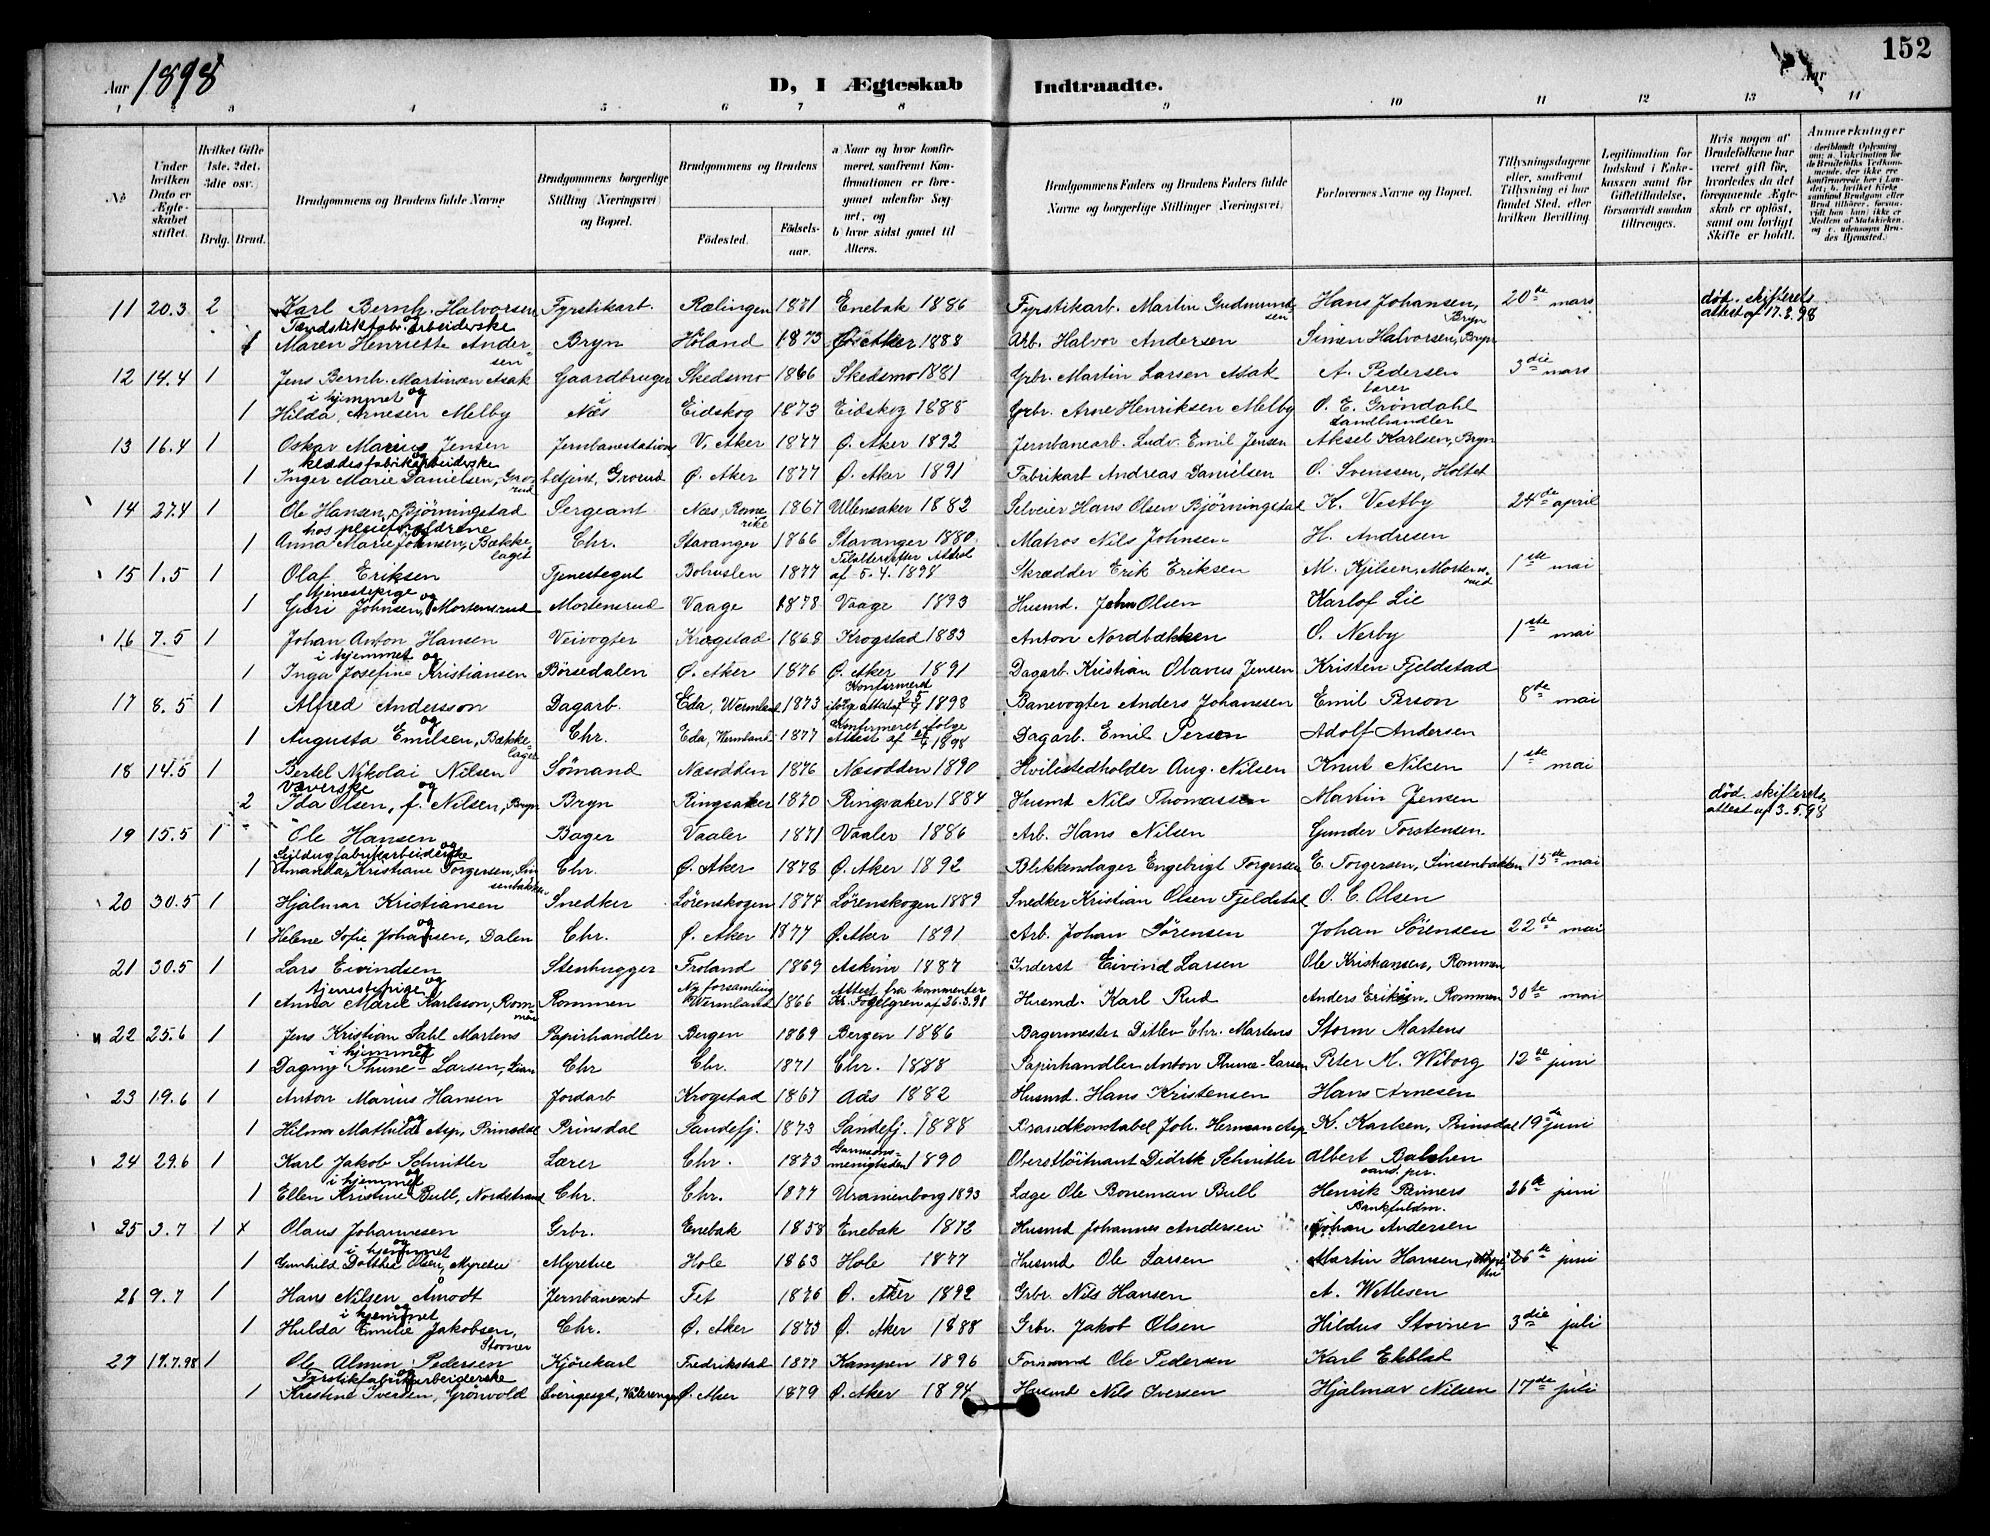 152
Aar 1898
D, I Ægteskab Indtraadte.
Aar
1 2 3 4 5 6 7 8 9 10 11 12 13 14
No.
Under hvilken Dato er Ægteskabet stiftet.
Hvilket Gifte (1ste. 2det. 3die osv.)
Brdg. Brud.
Brudgommens og Brudens fulde Navne
Brudgommens borgerlige Stilling (Næringsvei) og Bopæl.
Brudgommens og Brudens
Fødested.
Fødselsaar.
a Naar og hvor konfirmeret, saafremt Konfirmationen er foregaaet udenfor Sognet, og
b) hvor sidst gaaet til Alters.
Brudgommens Faders og Brudens Faders fulde Navne og borgerlige Stillinger (Næringsvei)
Forlovernes Navne og Bopæl.
Tillysningsdagene eller, saafremt Tillysning ei har fundet Sted, efter hvilken Bevilling
Legitimation for Indskud i Enkekassen samt for Giftetilladelse, forsaavidt saadan tiltrænges.
Hvis nogen af Brudefolkene har været gift før, hvorledes da det foregaaende Ægteskab er opløst, samt om lovligt Skifte er holdt.
Anmærkninger
11 20.3 2 Karl Bernh. Halvorsen Fyrstikarb. Rælingen 1871 Enebak 1886 Fyrstikarb. Martin Gudmundsen Hans Johansen, Bryn 20de mars død. skifterets attest af 17.3.98
Tændstikfab. arbeiderske og
1 Maren Henriette Andersen Bryn Høland 1873 Ø. Aker 1888 Arb. Halvor Andersen Simen Halvorsen, Bryn
12 14.4 1 Jens Bernh. Martinsen Asak Gaardbruger Skedsmo 1866 Skedsmo 1881 Grbr. Martin Larsen Asak A. Pedersen lærer 3die mars
i hjemmet og
1 Hilda Arnesen Melby i Næs Eidskog 1873 Eidskog 1888 Grbr. Arne Henriksen Melby O. E. Grøndahl Landhandler
13 16.4 1 Oskar Marius Jensen Jernbanestations V. Aker 1877 Ø. Aker 1892 Jernbanearb. Ludv. Emil Jensen Aksel Karlsen, Bryn
klædesfabrikarbeiderske og
1 Inger Marie Danielsen, Grorud betjent, Grorud Ø. Aker 1877 Ø. Aker 1891 Fabrikarb Andreas Danielsen O. Svenssen, Holtet
14 27.4 1 Ole Hansen Bjørningstad Sergeant Næs, Romerike 1867 Ullensaker 1882 Selveier Hans Olsen Bjørningstad K. Vestby 24de april
hos pleieforældrene og
1 Anna Marie Johnsen, Bækkelaget Chr. Stavanger 1866 Stavanger 1880. Matros Nils Johnsen H. Andresen
15 1.5 1 Olaf Eriksen Tjenestegut Bohuslen 1877 Tilalters efter Attest af 5.4.1898 Skrædder Erik Eriksen M. Kjilsen, Mortensrud 1ste mai
tjenestepige og
1 Guri Johnsen, Mortensrud Mortensrud Vaage 1878 Vaage 1893 Husmd. John Olsen Karlof Lie
16 7.5 1 Johan Anton Hansen Veivogter Krogstad 1868 Krogstad 1883 Anton Nordbækken O. Nerby 1ste mai
i hjemmet og
1 Inga Josefine Kristiansen Börsedalen Ø. Aker 1876 Ø. Aker 1891 Dagarb. Kristian Olavus Jensen Kristen Fjeldstad
17 8.5 1 Alfred Andersson Dagarb. Eda, Wermland 1873 Konfirmeret ifølg attest af 1898 Banevogter Anders Johanssen Emil Person 8de mai
og
1 Augusta Emilsen, Bækkelaget Chr. Eda, Wermland 1877 Konfirmeret ifølge Attest af 1898 Dagarb. Emil Person Adolf Andersen
18 14.5 1 Bertel Nikolai Nilsen Sömand Næsodden 1876 Næsodden 1890 Hvilestedholder Aug. Nilsen Knut Nilsen 1ste mai
Væverske og
2 Ida Olsen, f. Nilsen, Bryn Bryn Ringsaker 1870 Ringsaker 1884 Husmd Nils Thomassen Martin Jensen død. skifterets attest af 3.5.98
19 15.5 1 Ole Hansen Bager Vaaler 1871 Vaaler 1886 Arb. Hans Nilsen Gunder Torstensen
Seildugfabrikarbeiderske og
1 Amanda Kristiane Torgersen, Sinsenbakken Chr. Ø. Aker 1878 Ø. Aker 1892 Blikkenslager Engebrigt Torgersen E. Torgersen, Sinsenbakken 15de mai
20 30.5 1 Hjalmar Kristiansen Snedker Lørenskogen 1874 Lørenskogen 1889 Snedker Kristian Olsen Fjeldstad O. C. Olsen
og
1 Helene Sofie Johansen, Dalen Chr. Ø. Aker 1877 Ø. Aker 1891 Arb. Johan Sörensen Johan Sörensen 22de mai
21 30.5 1 Lars Eivindsen Stenhugger Froland 1869 Askim 1887 Inderst Eivind Larsen Ole Kristiansen, Rommen
tjenestepige og
1 Anna Marie Karlsson, Rommen Rommen Ny forsamling Wermland 1866 Attest fra kommenter Kr. Fogelgren af 26.3.98 Husmd. Karl Rud Anders Eriksen, Rommen 30te mai
22 25.6 1 Jens Kristian Dahl Martens Papirhandler Bergen 1869 Bergen 1886 Bagermester Ditlev Chr. Martens Storm Martens
i hjemmet og
1 Dagny Thune-Larsen, Lian Chr Chr. 1871 Chr. 1888 Papirhandler Anton Thune-Larsen Peter M. Wiborg 12te juni
23 19.6 1 Anton Marius Hansen Jordarb Krogstad 1867 Aas 1882 Husmd. Hans Kristensen Hans Arnesen
og
1 Hilma Mathilde Asp, Prinsdal Prinsdal Sandefj. 1873 Sandefj. 1888 Brandkonstabel Joh. Herman Asp K. Karlsen, Prinsdal 19de juni
24 29.6 1 Karl Jakob Schnitler Lærer Chr. 1873 Garnisonsmenigheden 1890 Oberstlöitnant Didrik Schnitler Albert Balchen cand. jur.
i hjemmet og
1 Ellen Kristine Bull, Nordstrand Chr. Chr. 1877 Uranienborg 1893 Læge Ole Boneman Bull Henrik Reimers Bankfuldm. 26de juni
25 3.7 1 x Olaus Johannesen Grbr. Enebak 1858 Enebak 1872 Husmd Johannes Andersen Johan Andersen
i hjemmet og
1 Gunhild Dorthea Olsen, Myretue Myretue Hole 1863 Hole 1877 Husmd Ole Larsen Martin Hansen, 26de juni
26 9.7 1 Hans Nilsen Åmodt Jernbanearb Fet 1876 Ø. Aker 1892 Grbr. Nils Hansen A. Wetlesen
i hjemmet og
1 Hulda Emilie Jakobsen, Stovner Chr. Ø. Aker 1873 Ø. Aker 1888 Grbr. Jakob Olsen Hildus Stovner 3die juli
27 17.7.98 1 Ole Almin Pedersen Kjörekarl Fredrikstad 1877 Kampen 1896 Formand Ole Pedersen Karl Ekblad
Fyrstikfabrikarbeiderske og
1 Kristine Iversen, Grönvold Sverigesgt, Vålerengen Ø. Aker 1879 Ø. Aker 1894 Husmd Nils Iversen Hjalmar Nilsen 17de juli